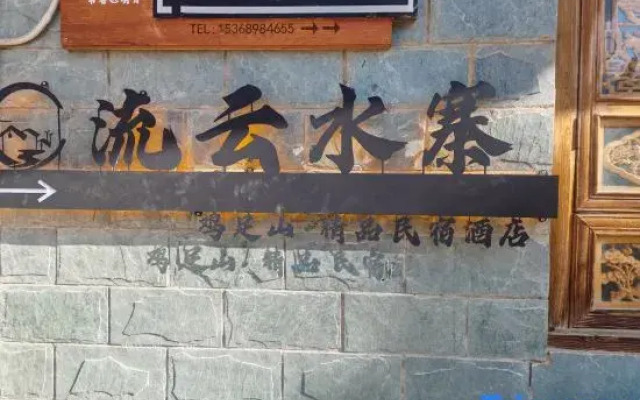 TEL: 15368984655
流云水寨
鸡足山·精品民宿酒店